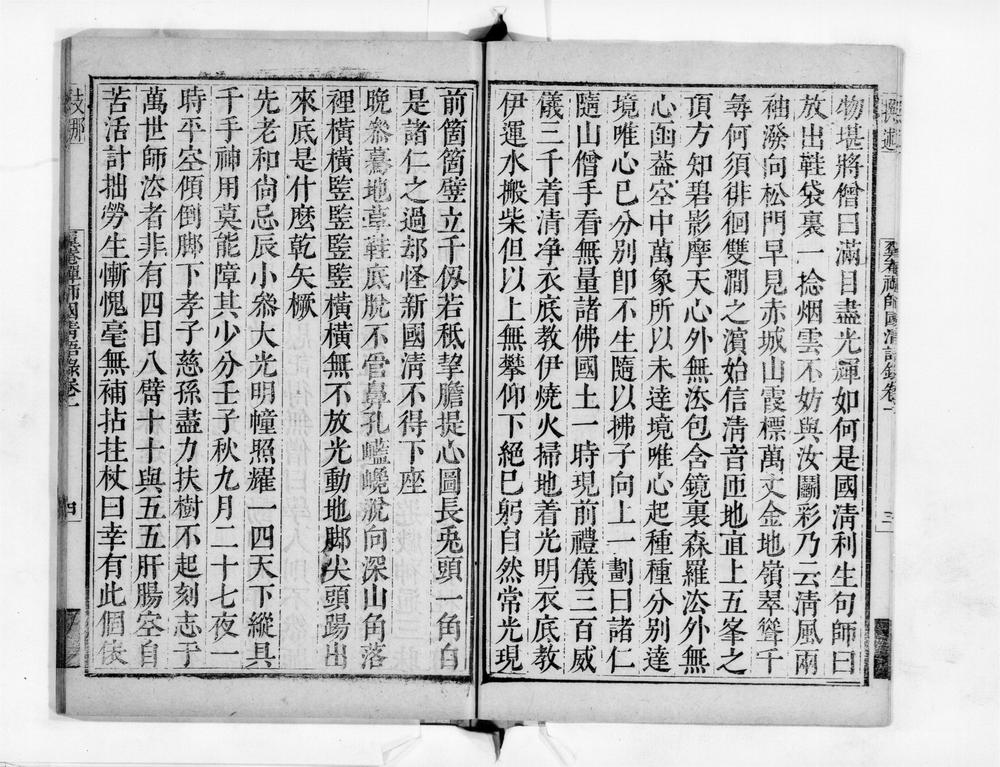 物堪將僧曰滿目盡光輝如何是國清利生句師曰
放出鞋袋裏一捻烟雲不妨與汝鬬彩乃云清風兩
袖潑向松門早見赤城山霞標萬丈金地嶺翠聳千
尋何須徘徊雙澗之濵始信清音匝地直上五峯之
頂方知碧影摩天心外無法包含鏡裏森羅法外無
心凾葢空中萬象所以未達境唯心起種種分别達
境唯心已分别卽不生隨以拂子向上一劃曰諸仁
隨山僧手看無量諸佛國土一時現前禮儀三百威
儀三千着清净衣底教伊燒火掃地着光明衣底教
伊運水搬柴但以上無攀仰下絕巳躬自然常光現
前箇箇壁立千仭若秪挈膽提心圖長兎頭一角自
是諸仁之過却怪新國清不得下座
晚叅驀地草鞋底脫不管鼻孔巇巉說向深山角落
裡橫橫竪竪竪竪橫橫無不放光動地脚尖頭踢出
來底是什麼乾矢橛
先老和尚忌辰小叅大光明幢照耀一四天下縱具
千手神用莫能障其少分壬子秋九月二十七夜一
時平空傾倒脚下孝子慈孫盡力扶樹不起刻志于
萬世師法者非有四目八臂十十與五五肝腸空自
苦活計拙勞生慚愧毫無補拈拄杖曰幸有此個依
禪師國清語録卷一
三
四